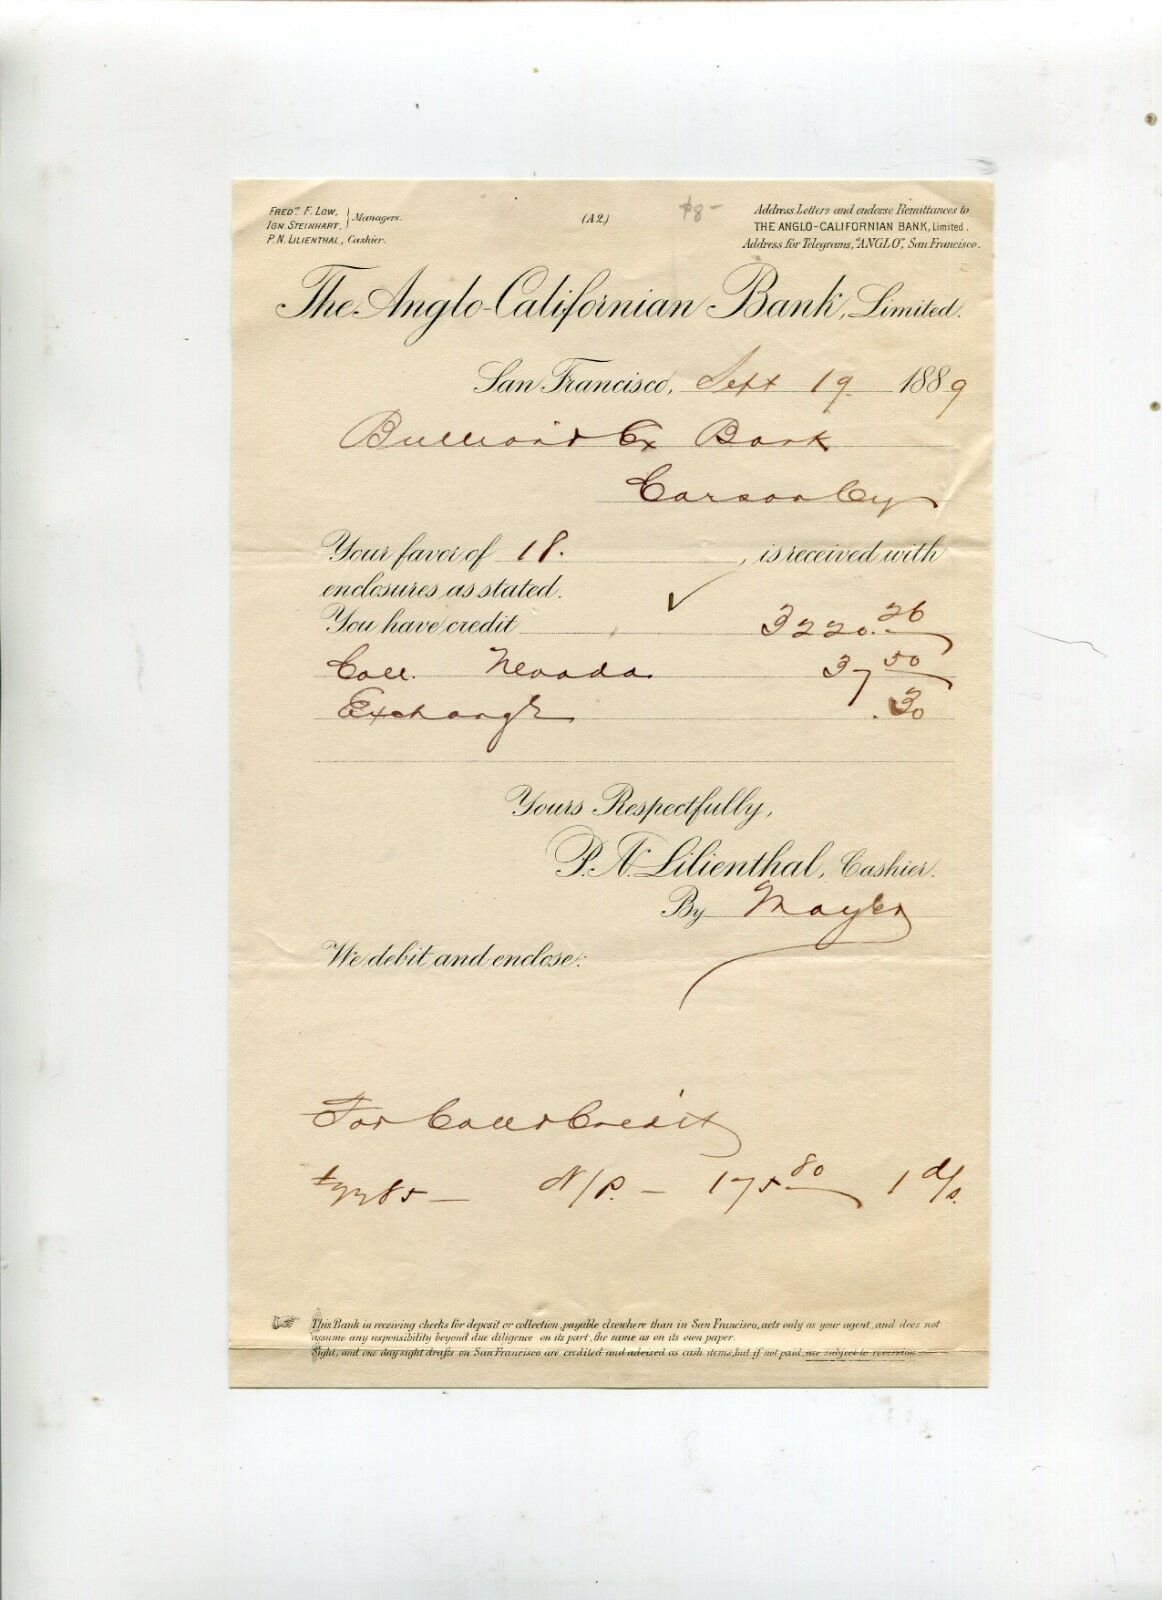 FRED'K F. LOW, } Managers.
IGN. STEINHART,
P. N. LILIENTHAL, Cashier.
(A2.)
$8-
Address Letters and endorse Remittances to
THE ANGLO-CALIFORNIAN BANK, Limited.
Address for Telegrams, "ANGLO", San Francisco.
The Anglo-Californian Bank, Limited.
San Francisco, Sept 19 1889
Bullion & Ex Bank
Carson Cy
Your favor of 18. , is received with
enclosures as stated. ✓
You have credit 3220.26
Coll. Nevada 37 50
Exchange .30
Yours Respectfully,
P. N. Lilienthal, Cashier.
By Mayer
We debit and enclose:
For Coll & Credit
N/P. - 175 80 1 d/s.
This Bank in receiving checks for deposit or collection, payable elsewhere than in San Francisco, acts only as your agent, and does not
assume any responsibility beyond due diligence on its part, the same as on its own paper.
Sight, and one day sight drafts on San Francisco are credited and advised as cash items, but if not paid, are subject to reversion